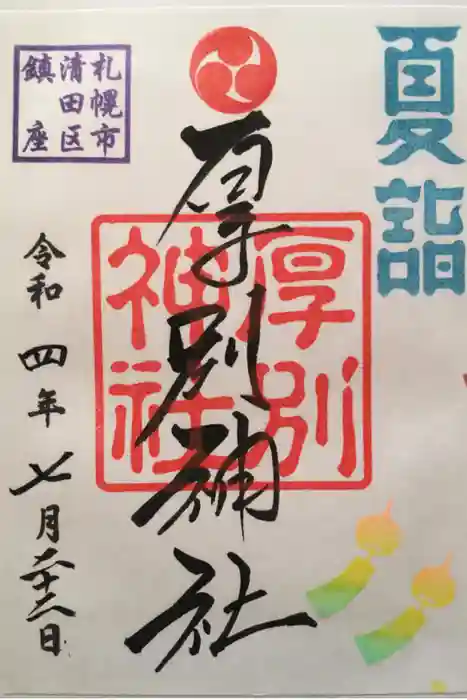 夏詣
厚別神社
厚別
神社
札幌市
清田区
鎮座
令和四年七月二十二日